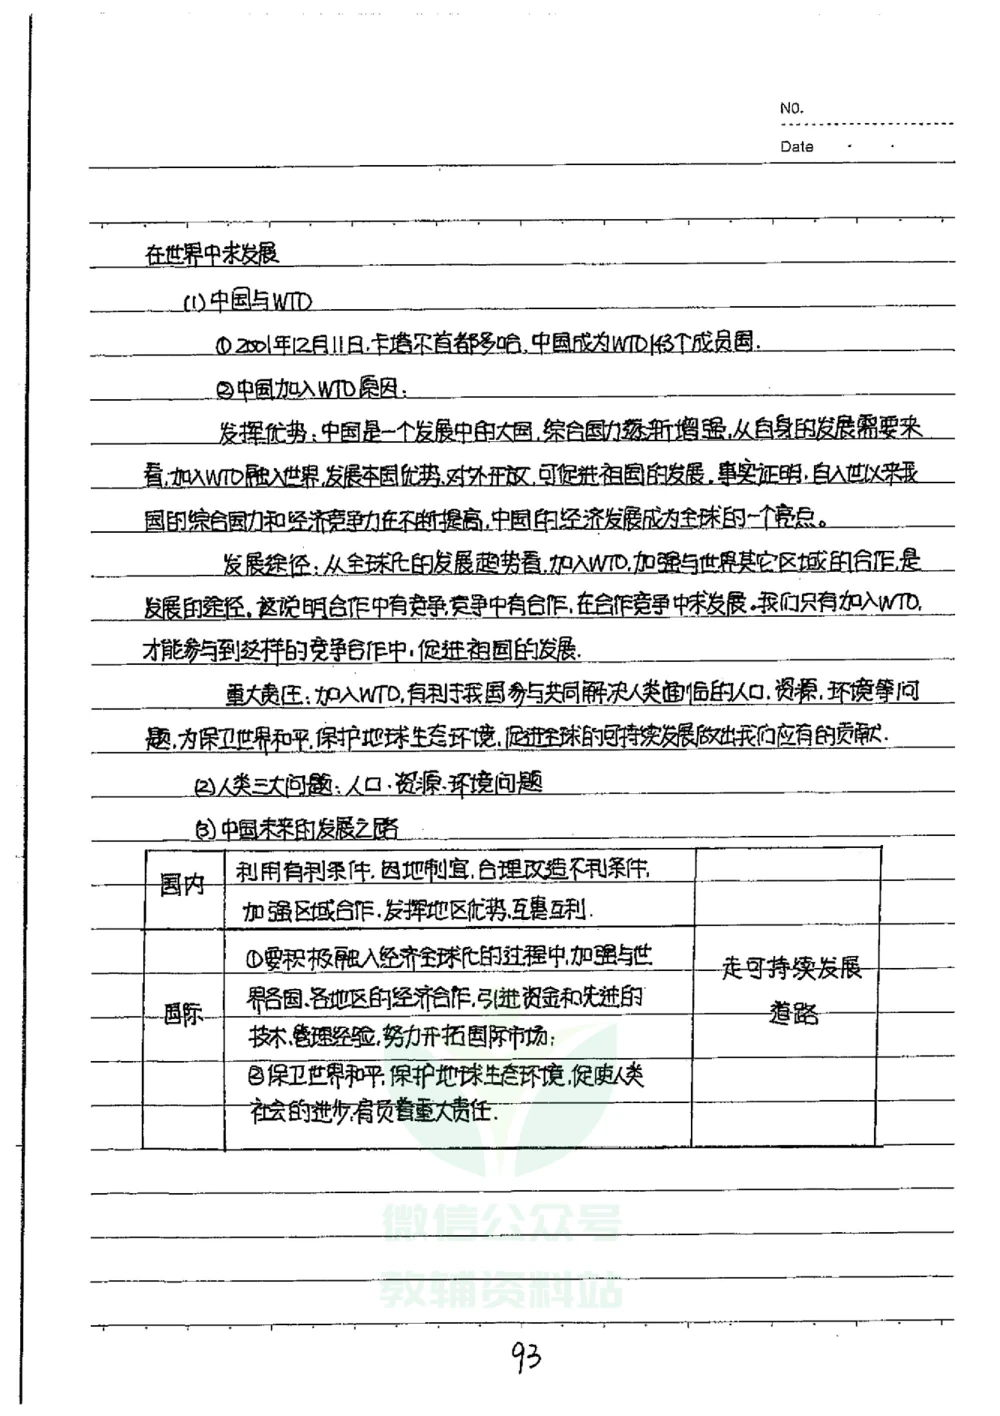 NO.
Date
在世界中求发展
(1)中国与WTO
①2001年12月11日,卡塔尔首都多哈,中国成为WTO143个成员国.
②中国加入WTO原因:
发挥优势:中国是一个发展中的大国,综合国力逐渐增强,从自身的发展需要来
看,加入WTO融入世界,发展本国优势,对外开放,可促进祖国的发展。事实证明,自入世以来我
国的综合国力和经济竞争力在不断提高,中国的经济发展成为全球的一个亮点。
发展途径:从全球化的发展趋势看,加入WTO,加强与世界其它区域的合作,是
发展的途径。这说明合作中有竞争,竞争中有合作,在合作竞争中求发展。我们只有加入WTO,
才能参与到这样的竞争合作中,促进祖国的发展.
重大责任:加入WTO,有利于我国参与共同解决人类面临的人口,资源,环境等问
题,为保卫世界和平,保护地球生态环境,促进全球的可持续发展做出我们应有的贡献.
(2)人类三大问题:人口·资源·环境问题
(3)中国未来的发展之路
国内
利用有利条件,因地制宜,合理改造不利条件,
加强区域合作,发挥地区优势,互惠互利.
国际
①要积极融入经济全球化的过程中,加强与世
界各国、各地区的经济合作,引进资金和先进的
技术、管理经验,努力开拓国际市场;
②保卫世界和平,保护地球生态环境,促使人类
社会的进步,肩负着重大责任.
走可持续发展
道路
微信公众号
教辅资料站
93